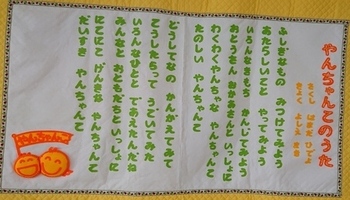 やんちゃんこのうた
さくし はまだ ひでよ
きょく よしえ まき
ふしぎなもの みつけてみよう
あたらしいこと やってみよう
いろんなきもち かんじてみよう
おとうさん おかあさんと いっしょに
わくわくやんちゃな やんちゃんこ
たのしい やんちゃんこ
どうしてなの かんがえてみて
こうしたらって うごいてみた
いろんなひとと であえたんだね
みんなと おともだちと いっしょに
にこにこ げんきな やんちゃんこ
だいすき やんちゃんこ
やんちゃんこ